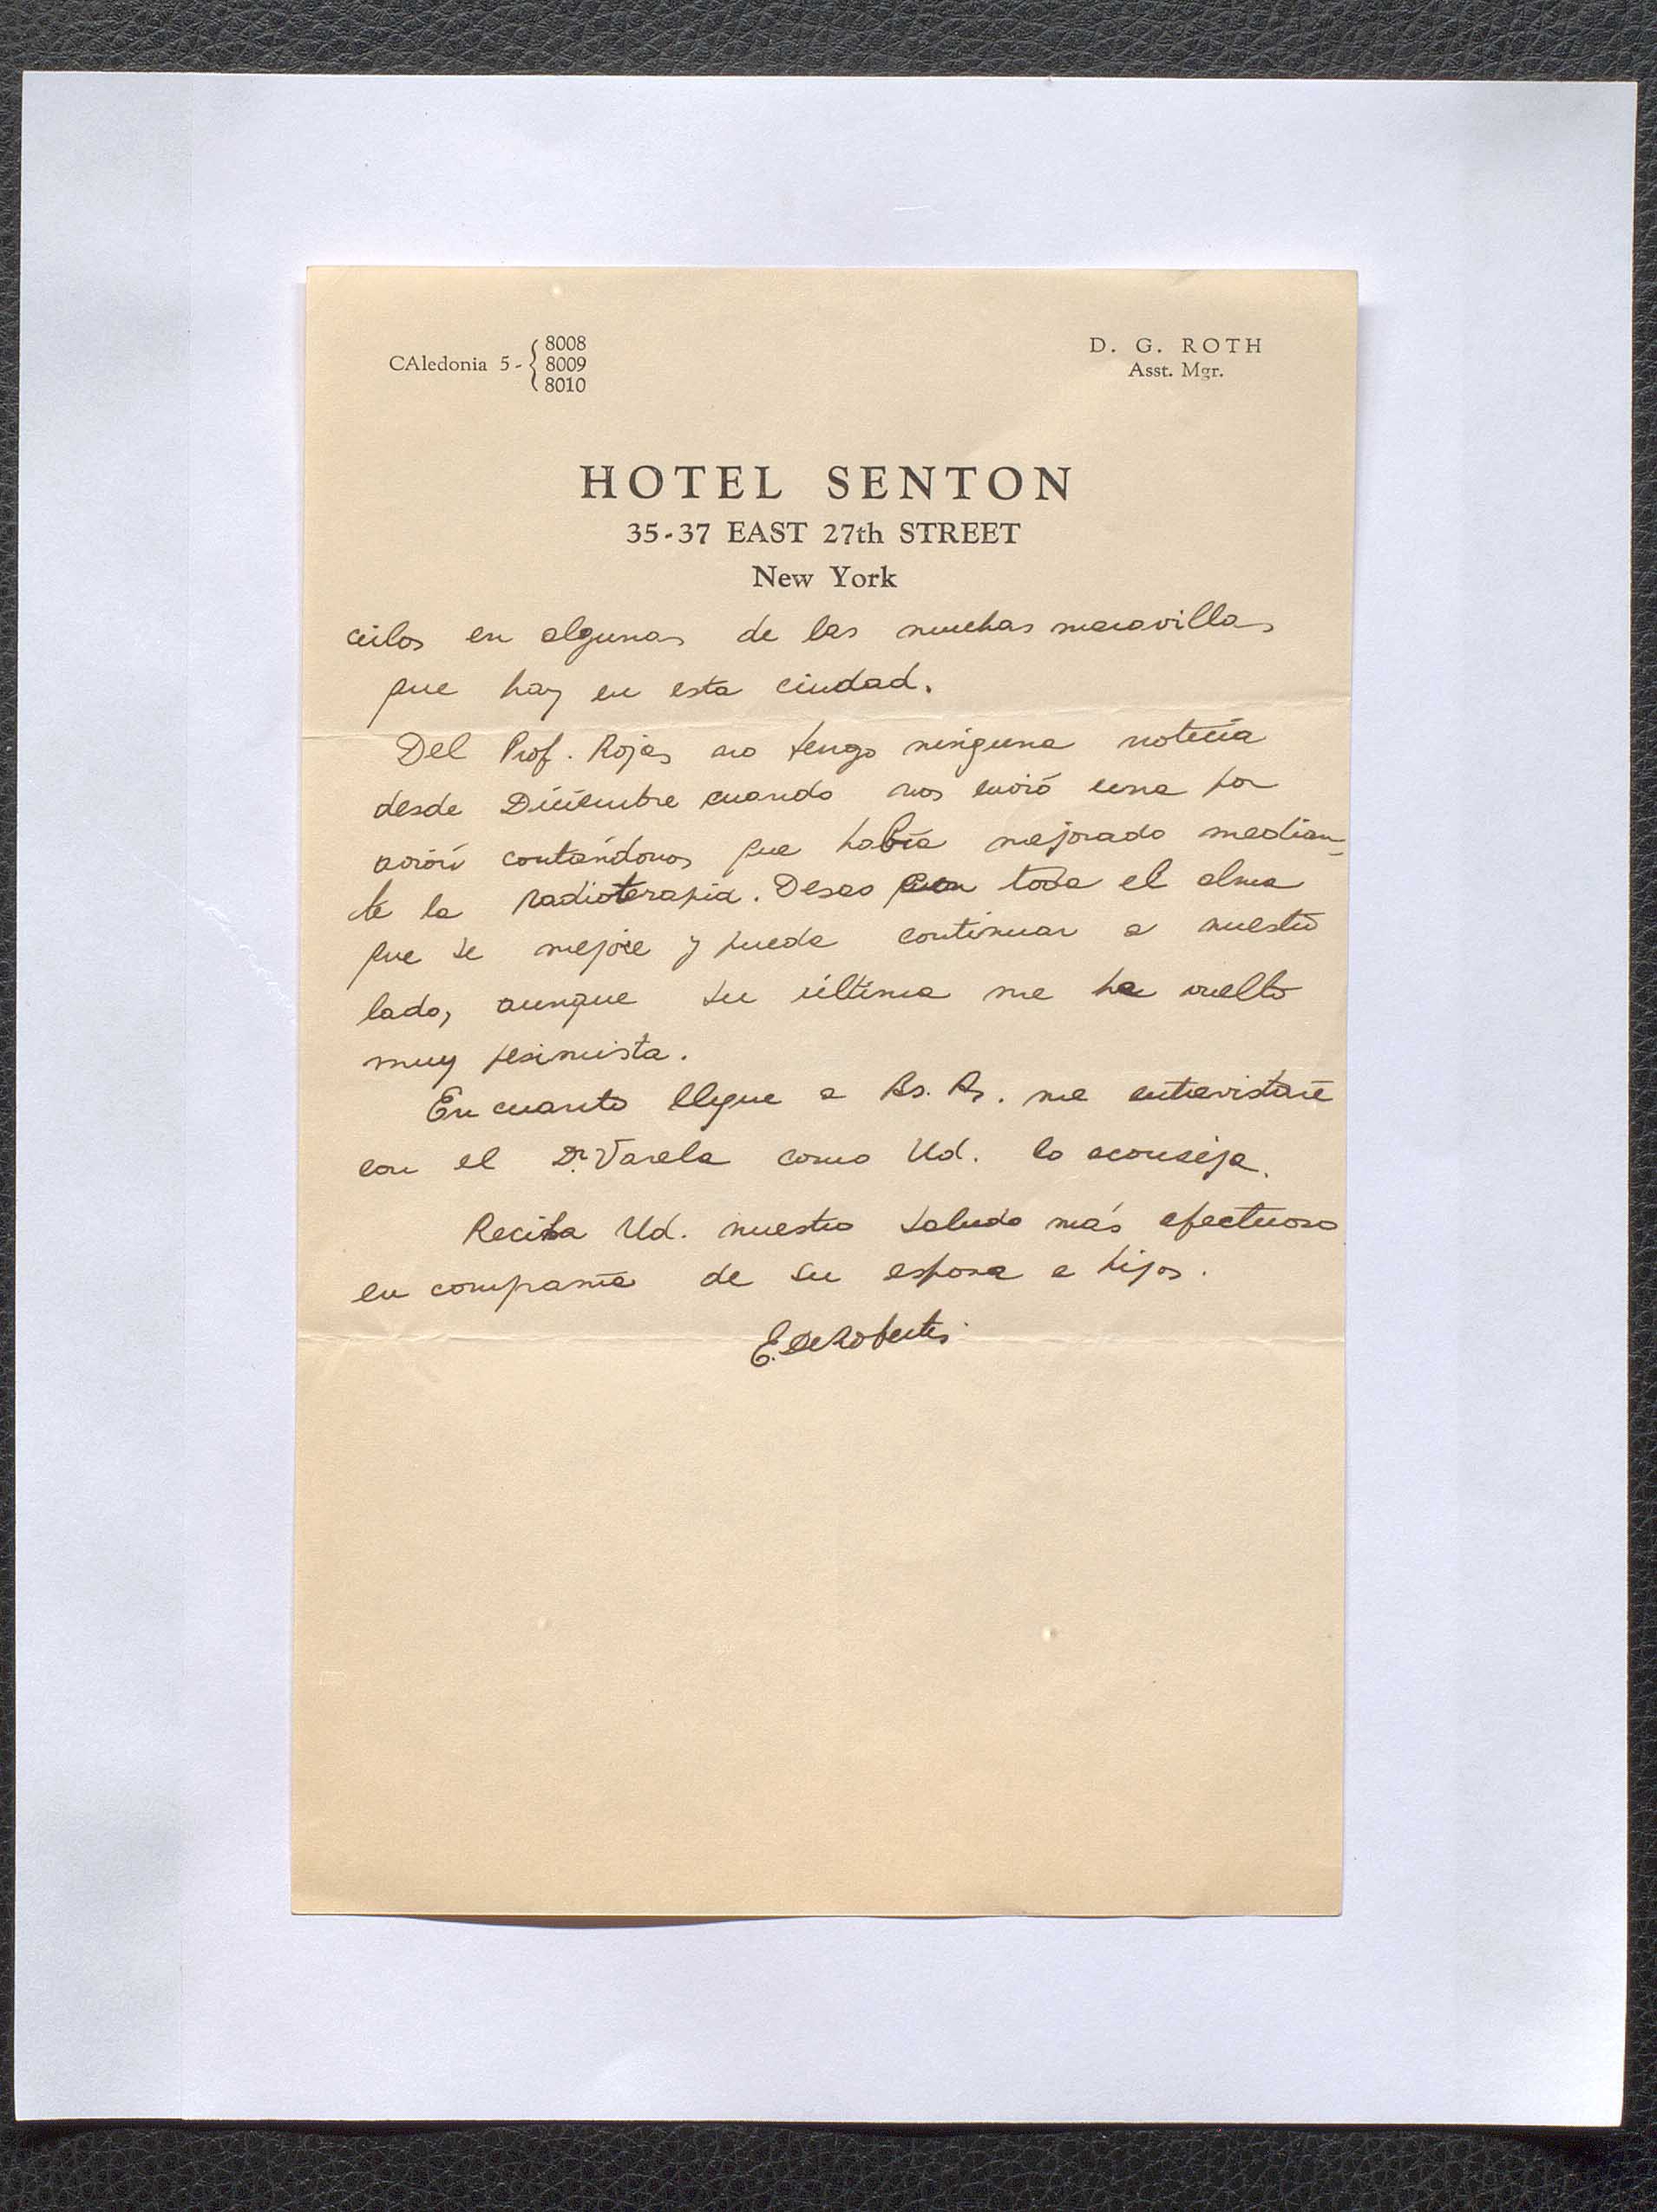 CAledonia 5-{8008
8009
8010
D. G. ROTH
Asst. Mgr.
HOTEL SENTON
35-37 EAST 27th STREET
New York
cirlos en algunas de las muchas maravillas
que hay en esta ciudad.
Del Prof. Rojas no tengo ninguna noticia
desde Diciembre cuando nos envió una por
avión contándonos que había mejorado median-
te la radioterapia. Deseo con toda el alma
que se mejore y pueda continuar a nuestro
lado, aunque su última me ha vuelto
muy pesimista.
En cuanto llegue a Bs. As. me entrevistaré
con el Dr. Varela como Ud. lo aconseja.
Reciba Ud. nuestro saludo más afectuoso
en compañía de su esposa e hijos.
E. De Robertis